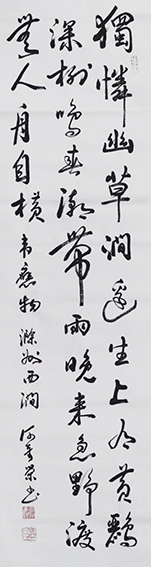 獨憐幽草澗邊生上有黄鸝
深樹鳴春潮帶雨晚来急野渡
無人舟自横 韋應物滁州西澗 書